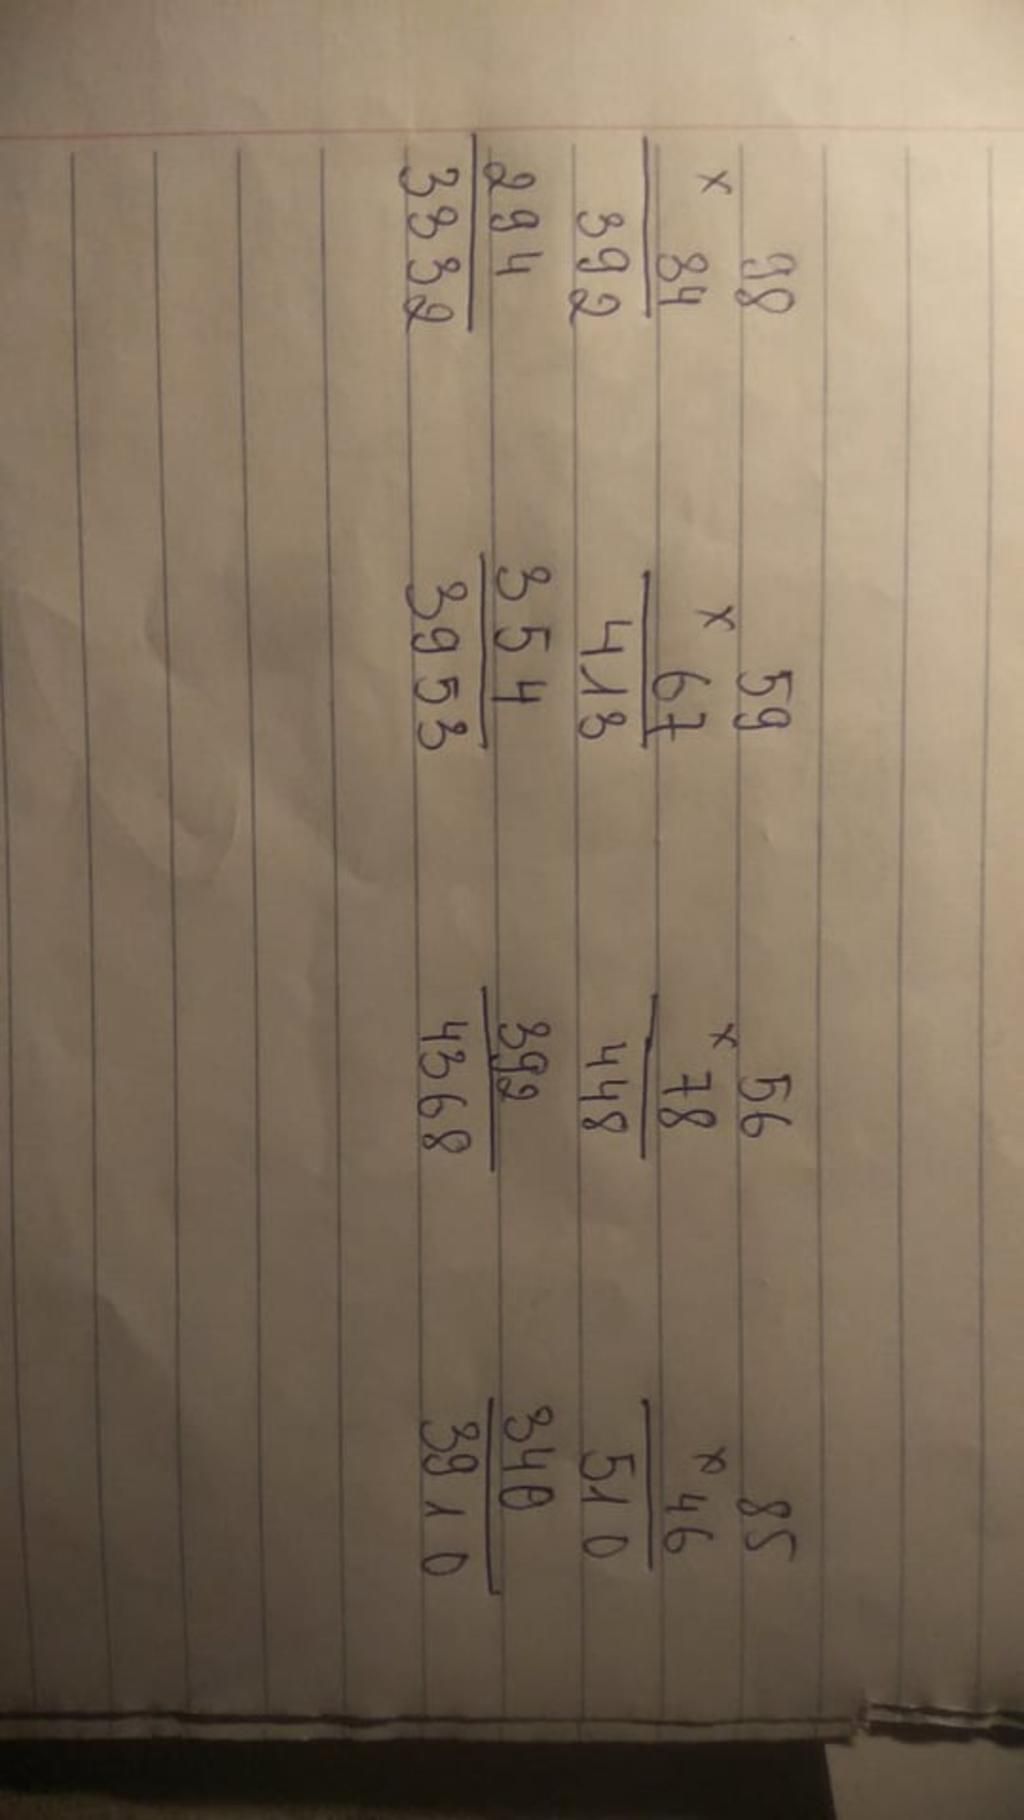 98 59 56 85
x 34 x 67 x 78 x 46
392 413 448 510
294 354 392 340
3332 3953 4368 3910